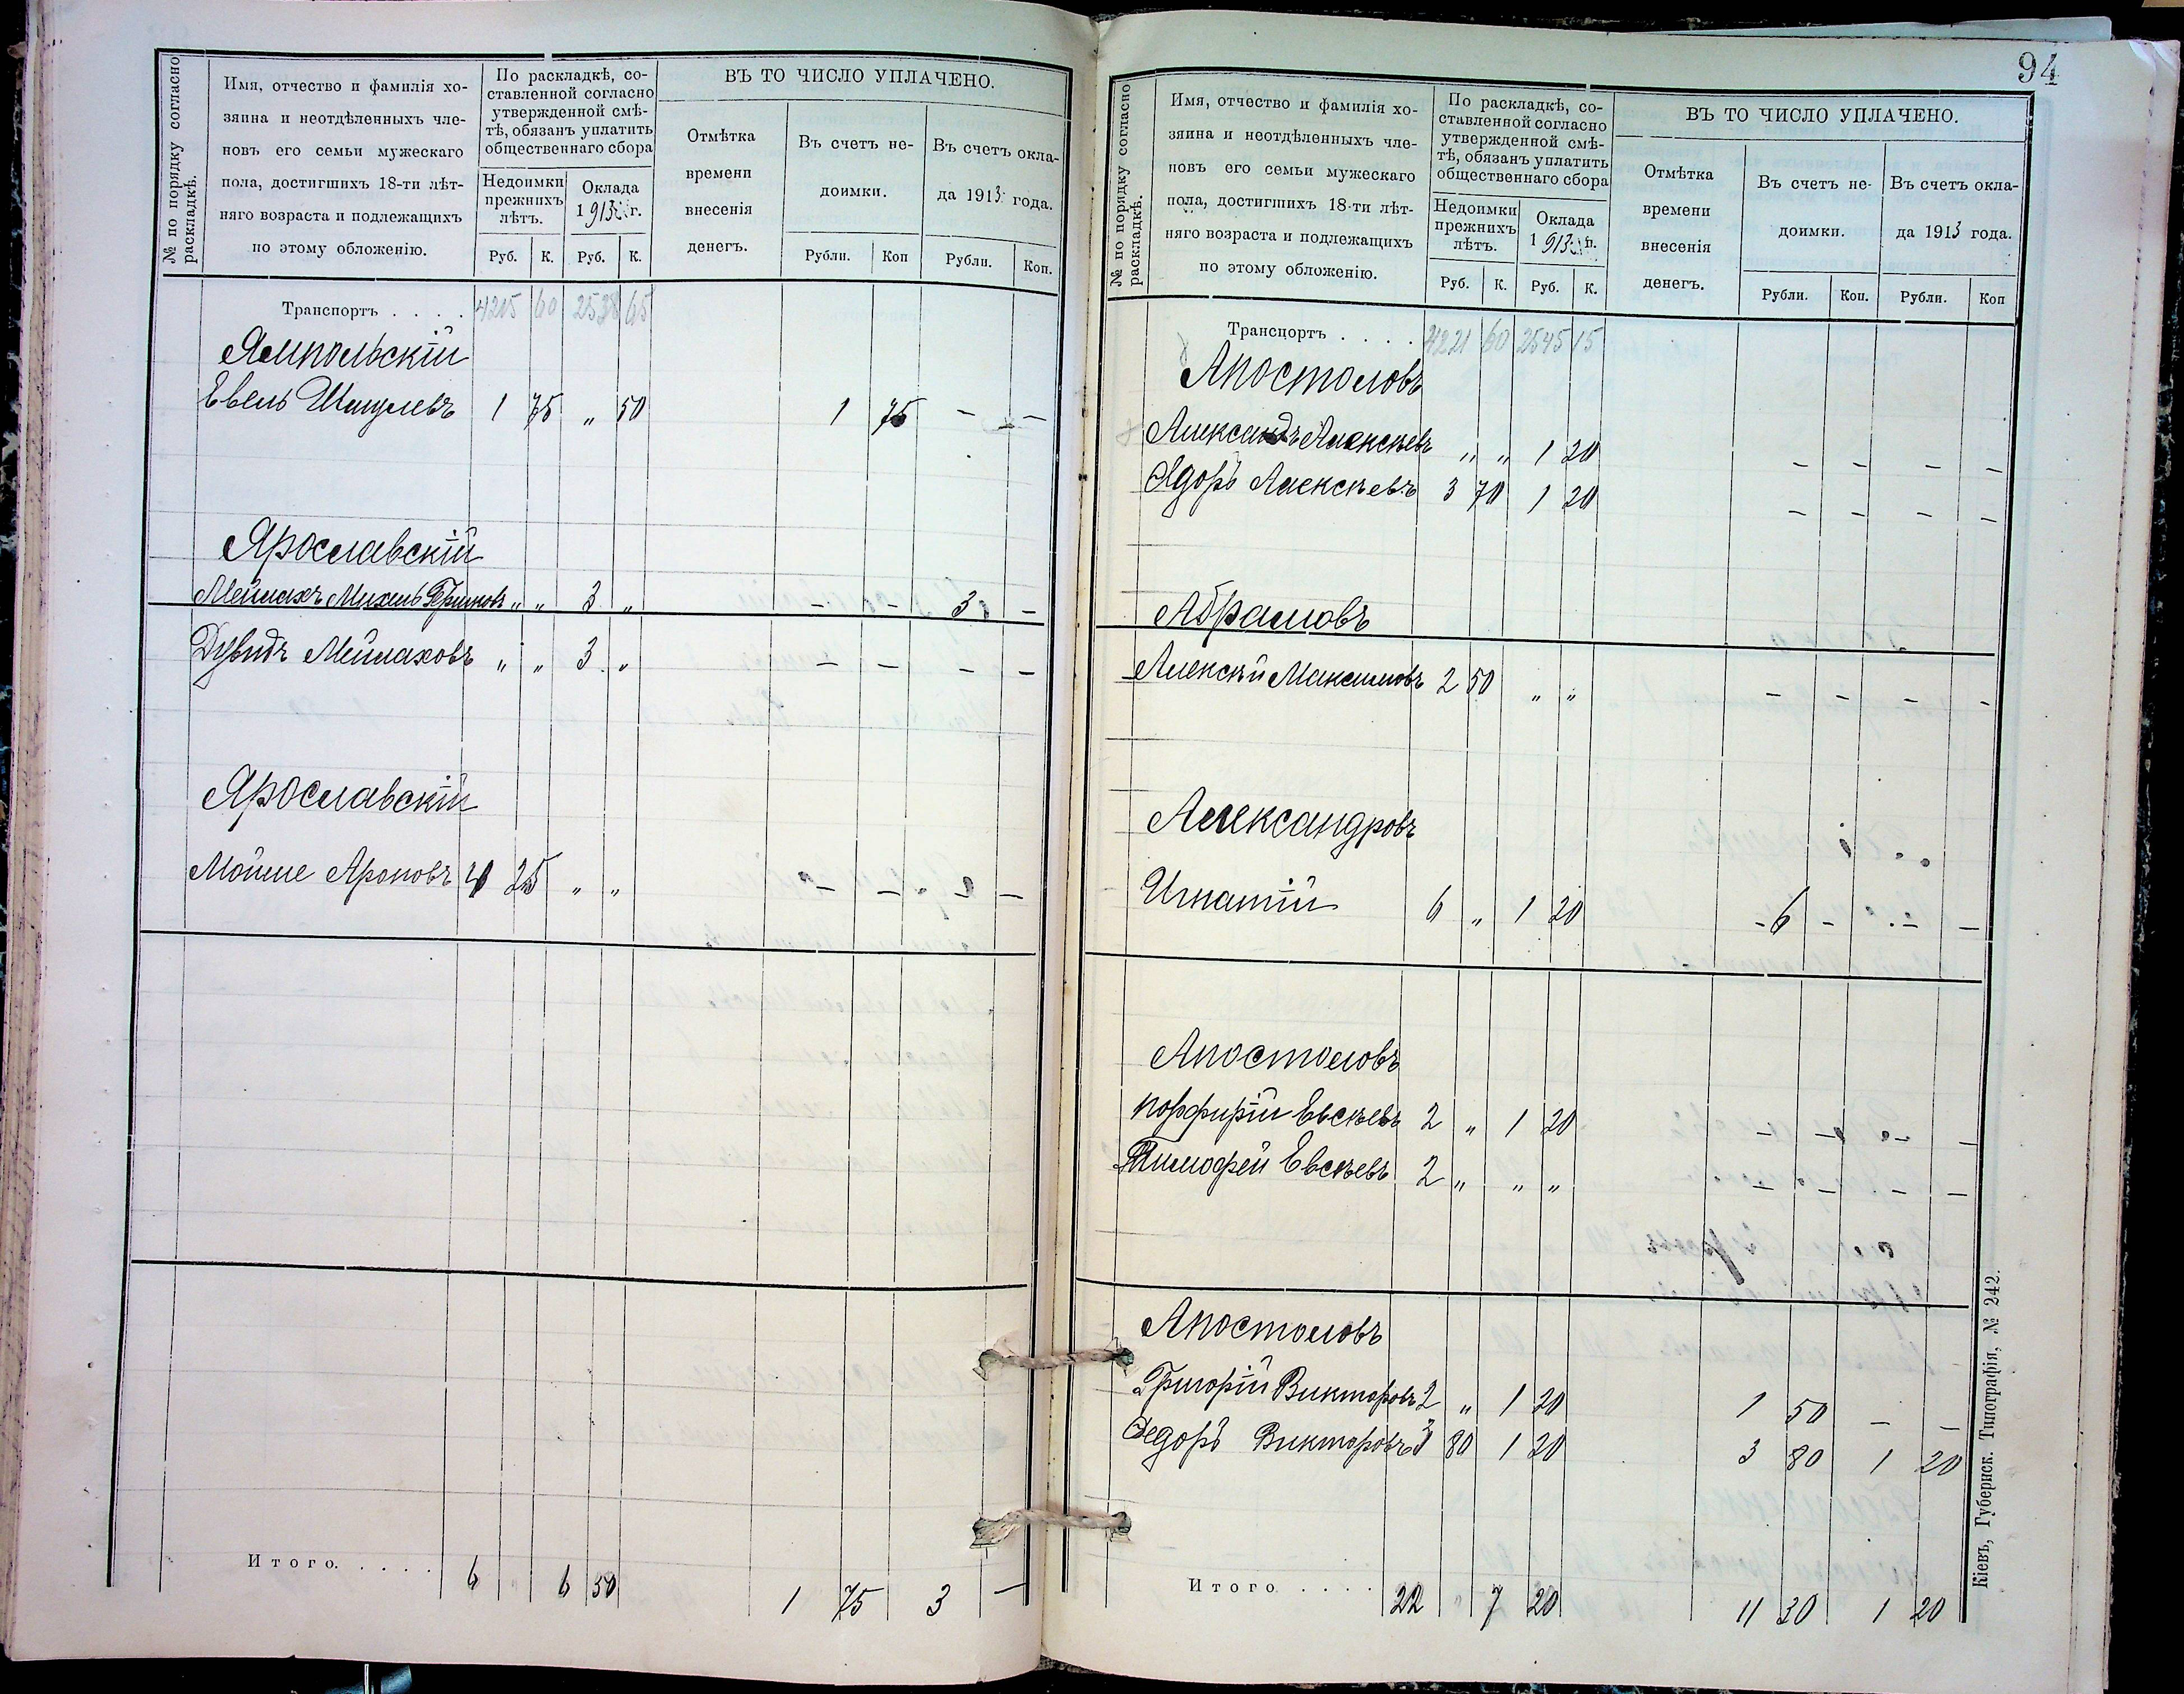 № по порядку согласно раскладкѣ.
Имя, отчество и фамилія хо-
зяина и неотдѣленныхъ чле-
новъ его семьи мужескаго
пола, достигшихъ 18-ти лѣт-
няго возраста и подлежащихъ
по этому обложенію.
По раскладкѣ, со-
ставленной согласно
утвержденной смѣ-
тѣ, обязанъ уплатить
общественнаго сбора
Недоимки
прежнихъ
лѣтъ.
Оклада
1913 г.
Руб. К. Руб. К.
ВЪ ТО ЧИСЛО УПЛАЧЕНО.
Отмѣтка
времени
внесенія
денегъ.
Въ счетъ не-
доимки.
Въ счетъ окла-
да 1913 года.
Рубли. Коп Рубли. Коп.
Транспортъ . . . . 4215 60 2538 65
Ямпольскій
Евель Шмулевъ 1 75 „ 50 1 75 — —
Ярославскій
Мейлахъ Михель „ „ 3 „ — — 3 —
Дувидъ Мейлаховъ „ „ 3 „ — — — —
Ярославскій
Мойше Ароновъ 4 25 „ „ — — — —
Итого. . . . . 6 „ 6 50 1 75 3 —
94
№ по порядку согласно раскладкѣ.
Имя, отчество и фамилія хо-
зяина и неотдѣленныхъ чле-
новъ его семьи мужескаго
пола, достигшихъ 18-ти лѣт-
няго возраста и подлежащихъ
по этому обложенію.
По раскладкѣ, со-
ставленной согласно
утвержденной смѣ-
тѣ, обязанъ уплатить
общественнаго сбора
Недоимки
прежнихъ
лѣтъ.
Оклада
1913 г.
Руб. К. Руб. К.
ВЪ ТО ЧИСЛО УПЛАЧЕНО.
Отмѣтка
времени
внесенія
денегъ.
Въ счетъ не-
доимки.
Въ счетъ окла-
да 1913 года.
Рубли. Коп. Рубли. Коп
Транспортъ . . . . 4221 60 2545 15
Апостоловъ
Александъ Алексѣевъ „ „ 1 20 — — — —
Ѳдоръ Алексѣевъ 3 70 1 20 — — — —
Абрамовъ
Алексѣй Максимовъ 2 50 „ „ — — — -
Александровъ
Игнатій 6 „ 1 20 -6 — — —
Апостоловъ
порфирій Евсѣевъ 2 „ 1 20 — — — —
Тимофей Евсѣевъ 2 „ „ „ — — — —
Апостоловъ
Григорій Викторовъ 2 „ 1 20 1 50 — —
Ѳедоръ Викторовъ 3 80 1 20 3 80 1 20
Итого . . . . 22 „ 7 20 11 30 1 20
Кіевъ, Губернск. Типографія, № 242.